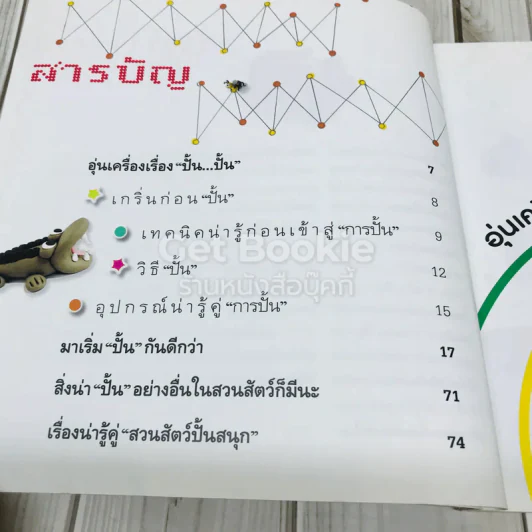 สารบัญ
อุ่นเครื่องเรื่อง “ปั้น...ปั้น” 7
เกริ่นก่อน “ปั้น” 8
เทคนิคน่ารู้ก่อนเข้าสู่ “การปั้น” 9
วิธี “ปั้น” 12
อุปกรณ์น่ารู้คู่ “การปั้น” 15
มาเริ่ม “ปั้น” กันดีกว่า 17
สิ่งน่า “ปั้น” อย่างอื่นในสวนสัตว์ก็มีนะ 71
เรื่องน่ารู้คู่ “สวนสัตว์ปั้นสนุก” 74
Get Bookie
ร้านหนังสือบุ๊คกี้